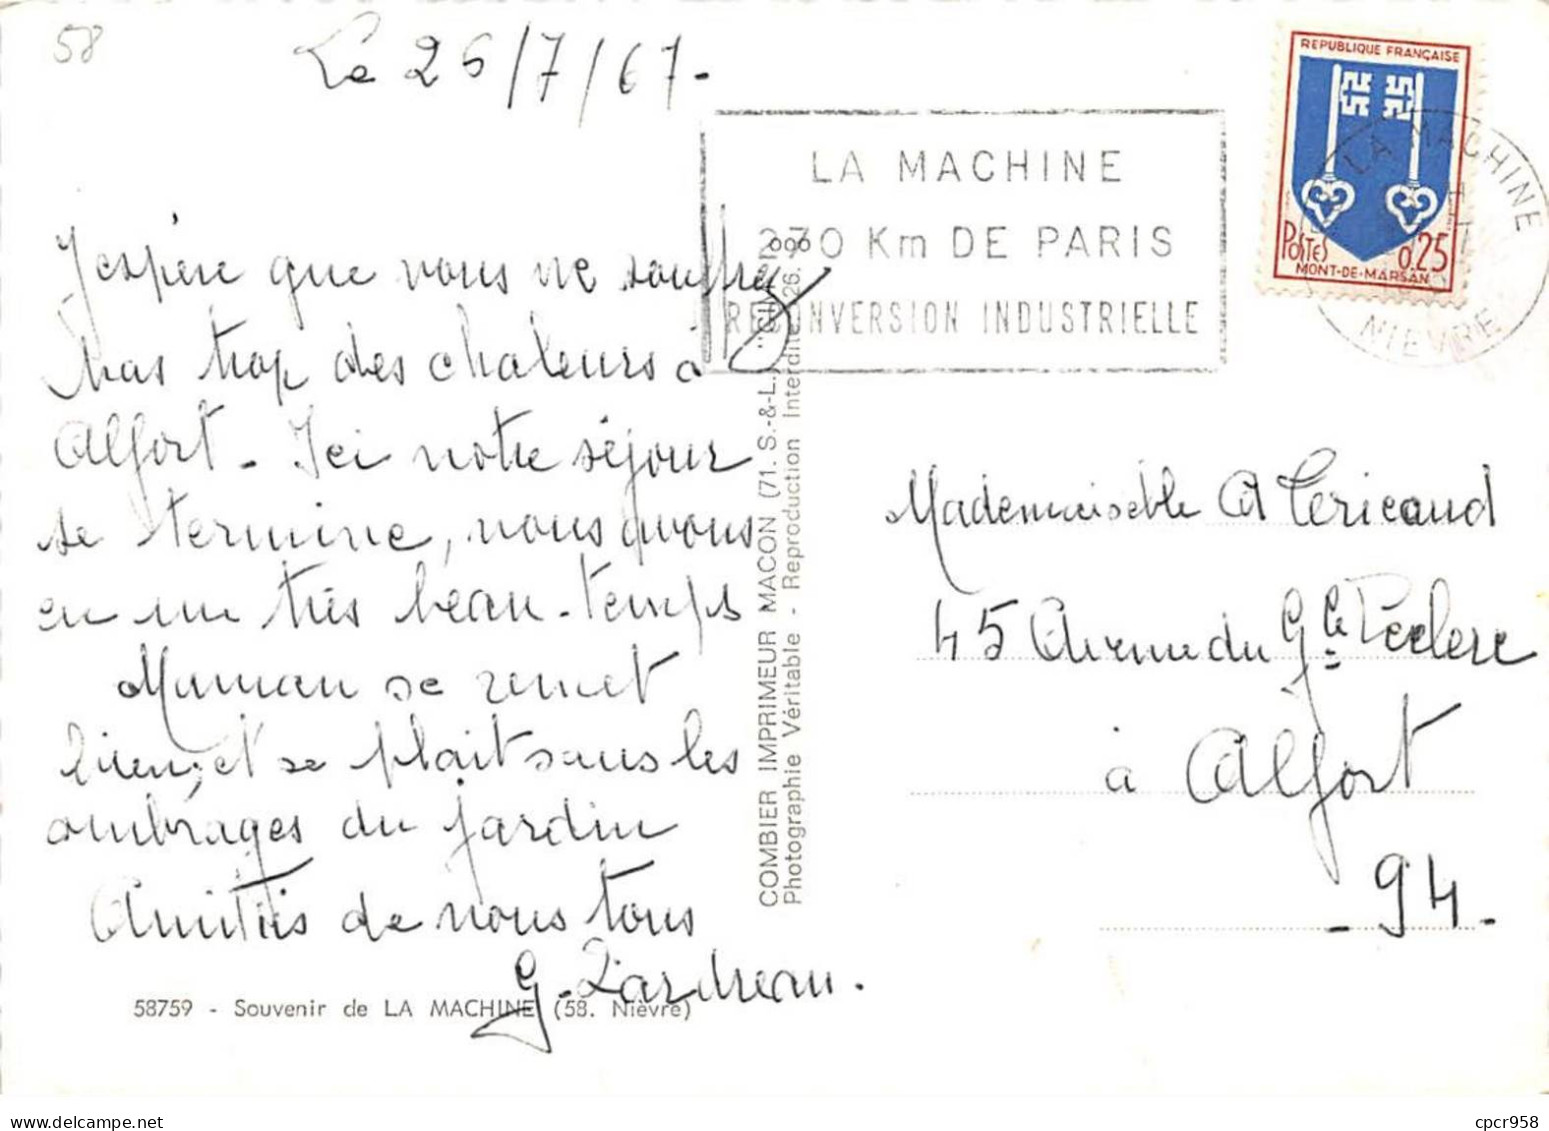 58
Le 26/7/67.
J'espère que vous ne souffrez
pas trop des chaleurs à
Alfort - Ici notre séjour
se termine, nous avons
eu un très beau-temps
Maman se remet
bien, et se plait sous les
ombrages du jardin
Amitiés de nous tous
G. Lardreau.
58759 - Souvenir de LA MACHINE (58. Nièvre)
COMBIER IMPRIMEUR MACON (71. S.-&-L.) "CIM"
Photographie Véritable - Reproduction Interdite
LA MACHINE
270 Km DE PARIS
RECONVERSION INDUSTRIELLE
REPUBLIQUE FRANÇAISE
POSTES 0,25
MONT-DE-MARSAN
LA MACHINE
NIEVRE
Mademoiselle A
45 Avenue du Gal Leclerc
à Alfort
- 94 -
cpcr958